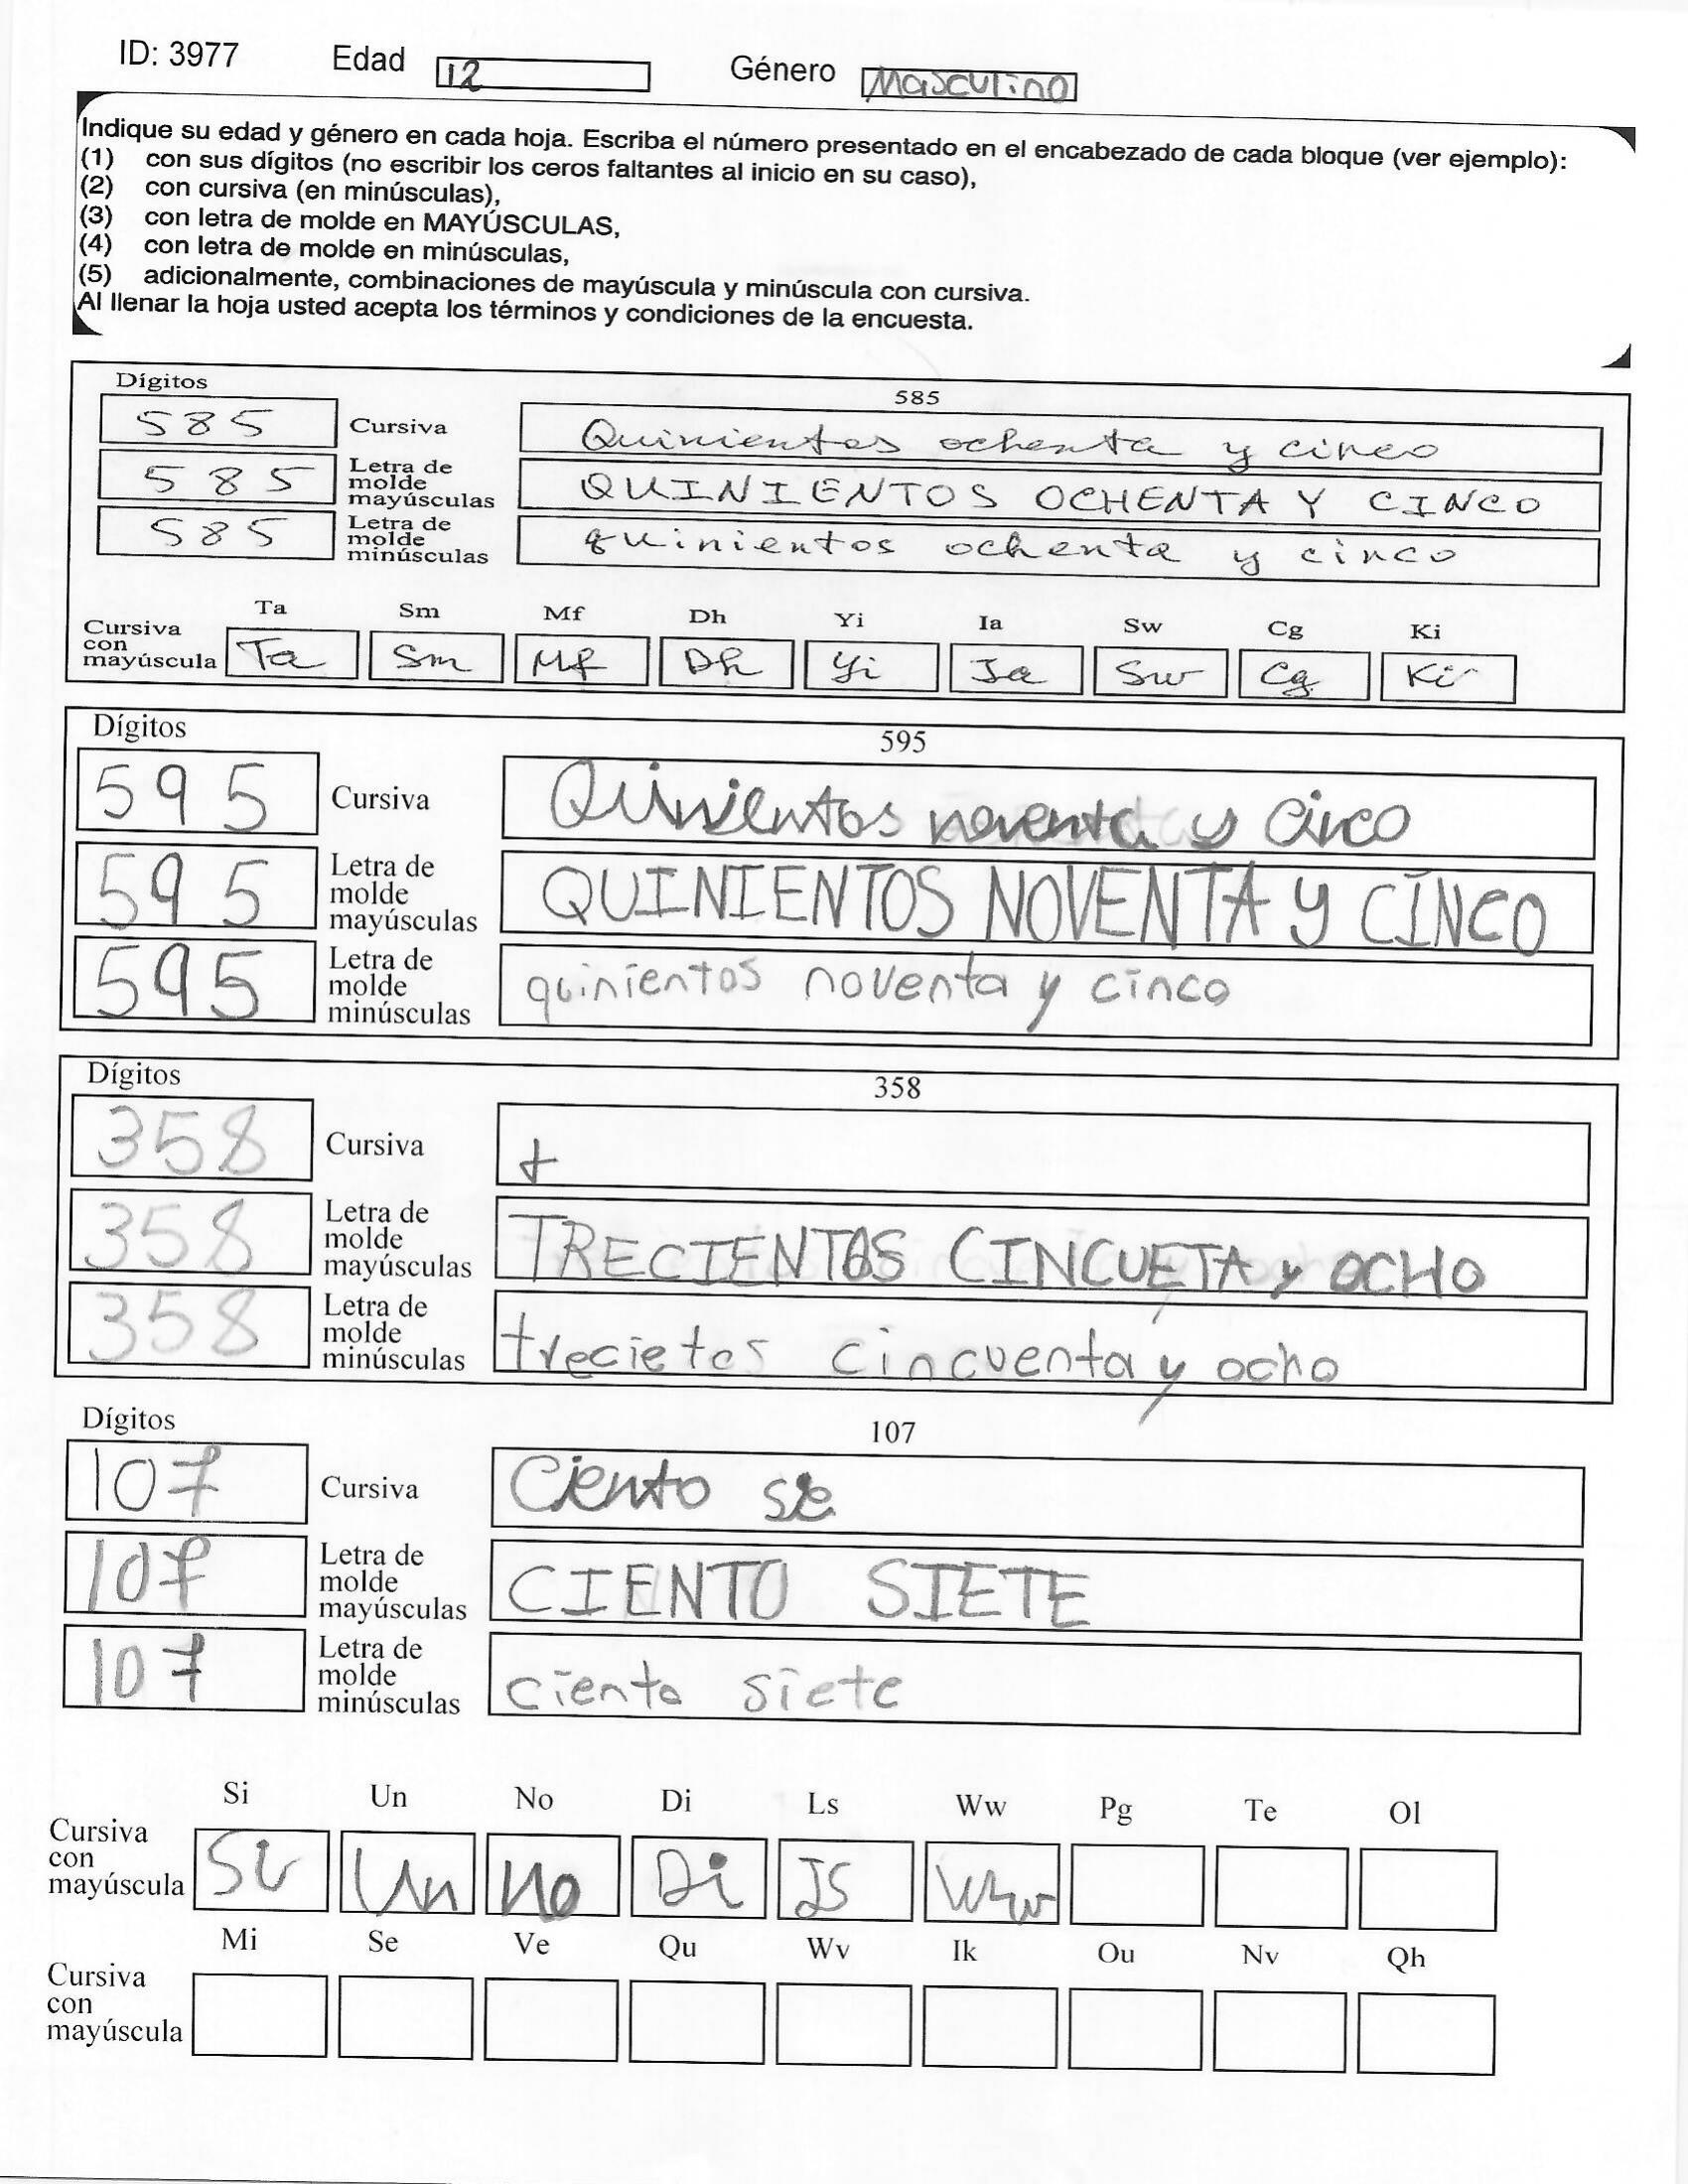 ID: 3977 Edad 12 Género Masculino
Indique su edad y género en cada hoja. Escriba el número presentado en el encabezado de cada bloque (ver ejemplo):
(1) con sus dígitos (no escribir los ceros faltantes al inicio en su caso),
(2) con cursiva (en minúsculas),
(3) con letra de molde en MAYÚSCULAS,
(4) con letra de molde en minúsculas,
(5) adicionalmente, combinaciones de mayúscula y minúscula con cursiva.
Al llenar la hoja usted acepta los términos y condiciones de la encuesta.
Dígitos 585
585 Cursiva Quinientos ochenta y cinco
585 Letra de molde mayúsculas QUINIENTOS OCHENTA Y CINCO
585 Letra de molde minúsculas quinientos ochenta y cinco
Ta Sm Mf Dh Yi Ia Sw Cg Ki
Cursiva con mayúscula Ta Sm Mf Dh Yi Ia Sw Cg Ki
Dígitos 595
595 Cursiva Quinientos noventa y Cinco
595 Letra de molde mayúsculas QUINIENTOS NOVENTA Y CINCO
595 Letra de molde minúsculas quinientos noventa y cinco
Dígitos 358
358 Cursiva t
358 Letra de molde mayúsculas TRECIENTOS CINCUETA y OCHO
358 Letra de molde minúsculas trecietos cincuenta y ocho
Dígitos 107
107 Cursiva Ciento sie
107 Letra de molde mayúsculas CIENTO SIETE
107 Letra de molde minúsculas ciento siete
Si Un No Di Ls Ww Pg Te Ol
Cursiva con mayúscula Si Un No Di Ls Ww
Mi Se Ve Qu Wv Ik Ou Nv Qh
Cursiva con mayúscula